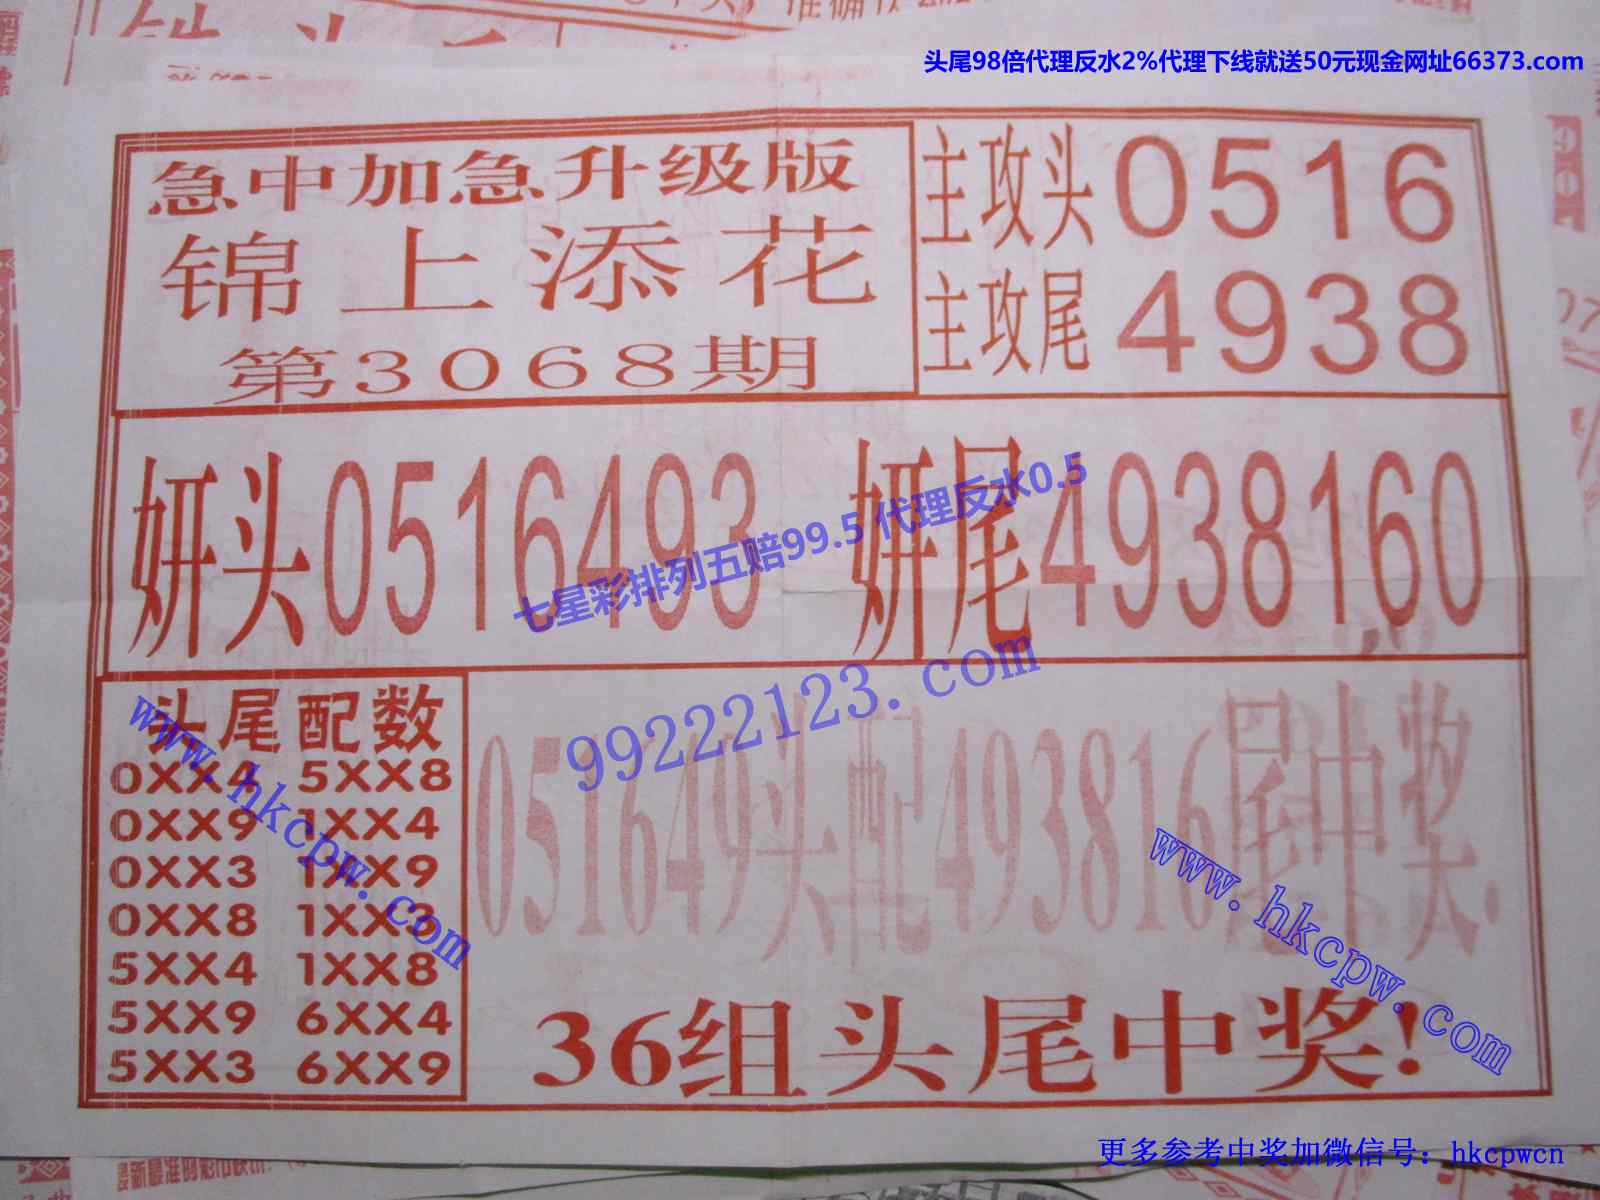 头尾98倍代理反水2%代理下线就送50元现金网址66373.com
急中加急升级版
锦上添花
第3068期
主攻头0516
主攻尾4938
妍头0516493
妍尾4938160
七星彩排列五赔99.5 代理反水0.5
99222123.com
头尾配数
0XX4 5XX8
0XX9 1XX4
0XX3 1XX9
0XX8 1XX3
5XX4 1XX8
5XX9 6XX4
5XX3 6XX9
www.hkcpw.com
051649头配493816尾中奖.
www.hkcpw.com
36组头尾中奖!
更多参考中奖加微信号：hkcpwcn